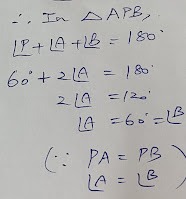 ∴ In △APB,
∠P + ∠A + ∠B = 180°
60° + 2∠A = 180°
2∠A = 120°
∠A = 60° = ∠B
(∵ PA = PB
∠A = ∠B)